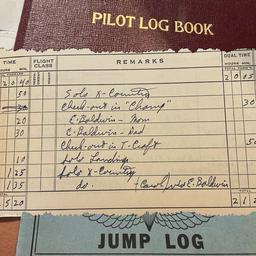 PILOT LOG BOOK
TIME FLIGHT CLASS REMARKS DUAL TIME
HOURS MIN. HOURS MIN.
2 0 40 2 0 15
50 Solo X-Country
30 Check-out in "Champ" 30
20 E. Baldwin - Mom
30 E. Baldwin - Dad
Check-out in T-Craft 50
10 Solo Landings
1 25 Solo X-Country
1 35 do. E. Baldwin
5 20 2 1
JUMP LOG